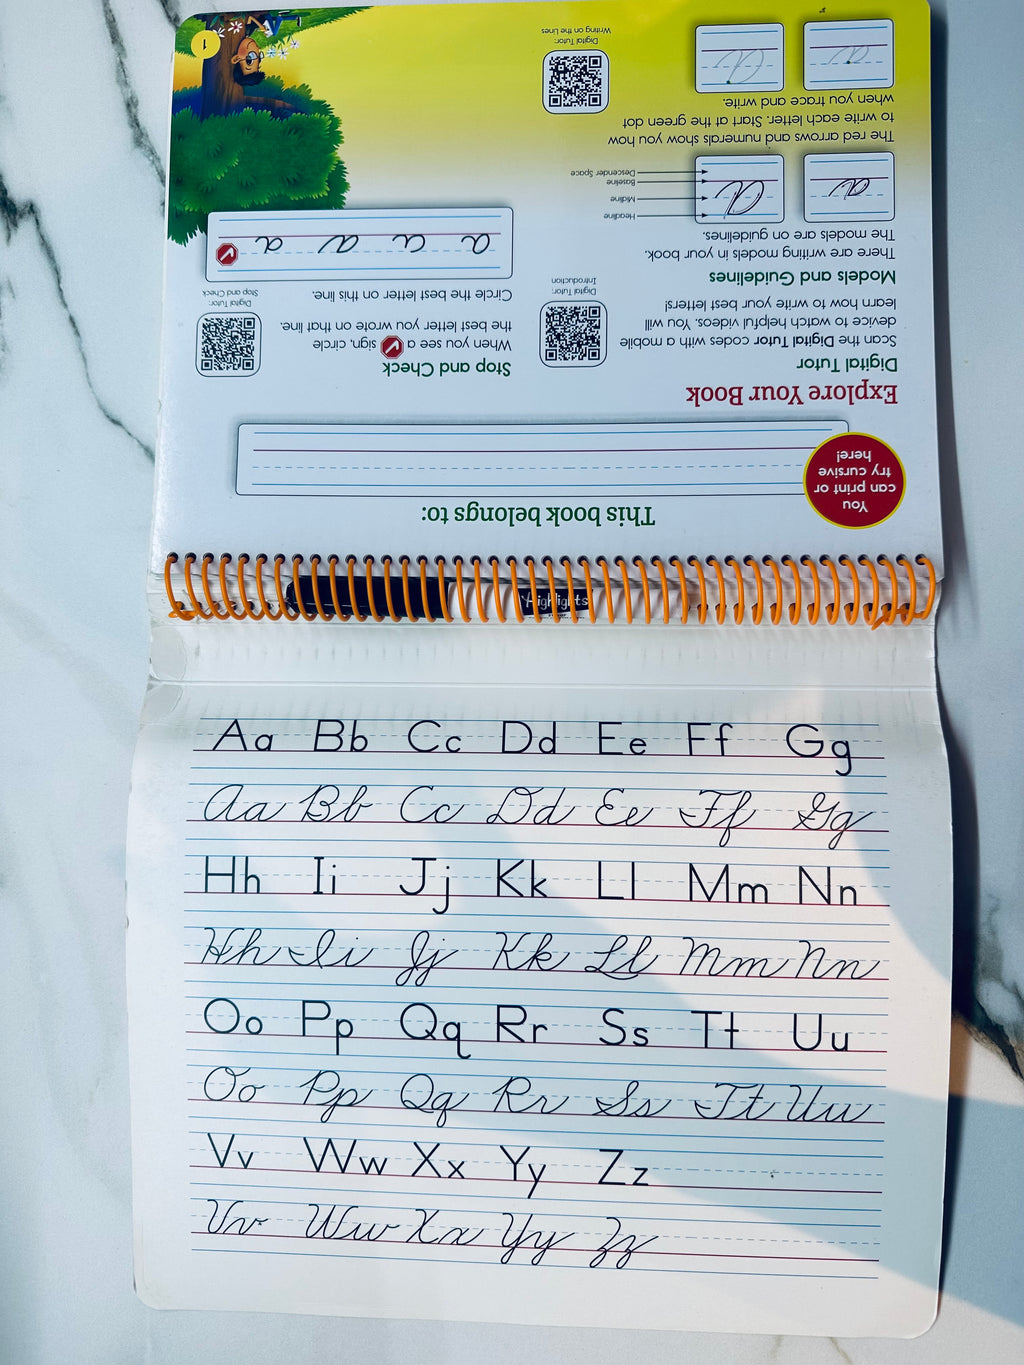 This book belongs to:
You
can print or
try cursive
here!
Explore Your Book
Digital Tutor
Scan the Digital Tutor codes with a mobile
device to watch helpful videos. You will
learn how to write your best letters!
Digital Tutor:
Introduction
Models and Guidelines
There are writing models in your book.
The models are on guidelines.
a a
Headline
Midline
Baseline
Descender Space
The red arrows and numerals show you how
to write each letter. Start at the green dot
when you trace and write.
a a
Digital Tutor:
Writing on the Lines
Stop and Check
When you see a sign, circle
the best letter you wrote on that line.
Digital Tutor:
Stop and Check
Circle the best letter on this line.
a a a a
1
Highlights
Aa Bb Cc Dd Ee Ff Gg
Aa Bb Cc Dd Ee Ff Gg
Hh Ii Jj Kk Ll Mm Nn
Hh Ii Jj Kk Ll Mm Nn
Oo Pp Qq Rr Ss Tt Uu
Oo Pp Qq Rr Ss Tt Uu
Vv Ww Xx Yy Zz
Vv Ww Xx Yy Zz